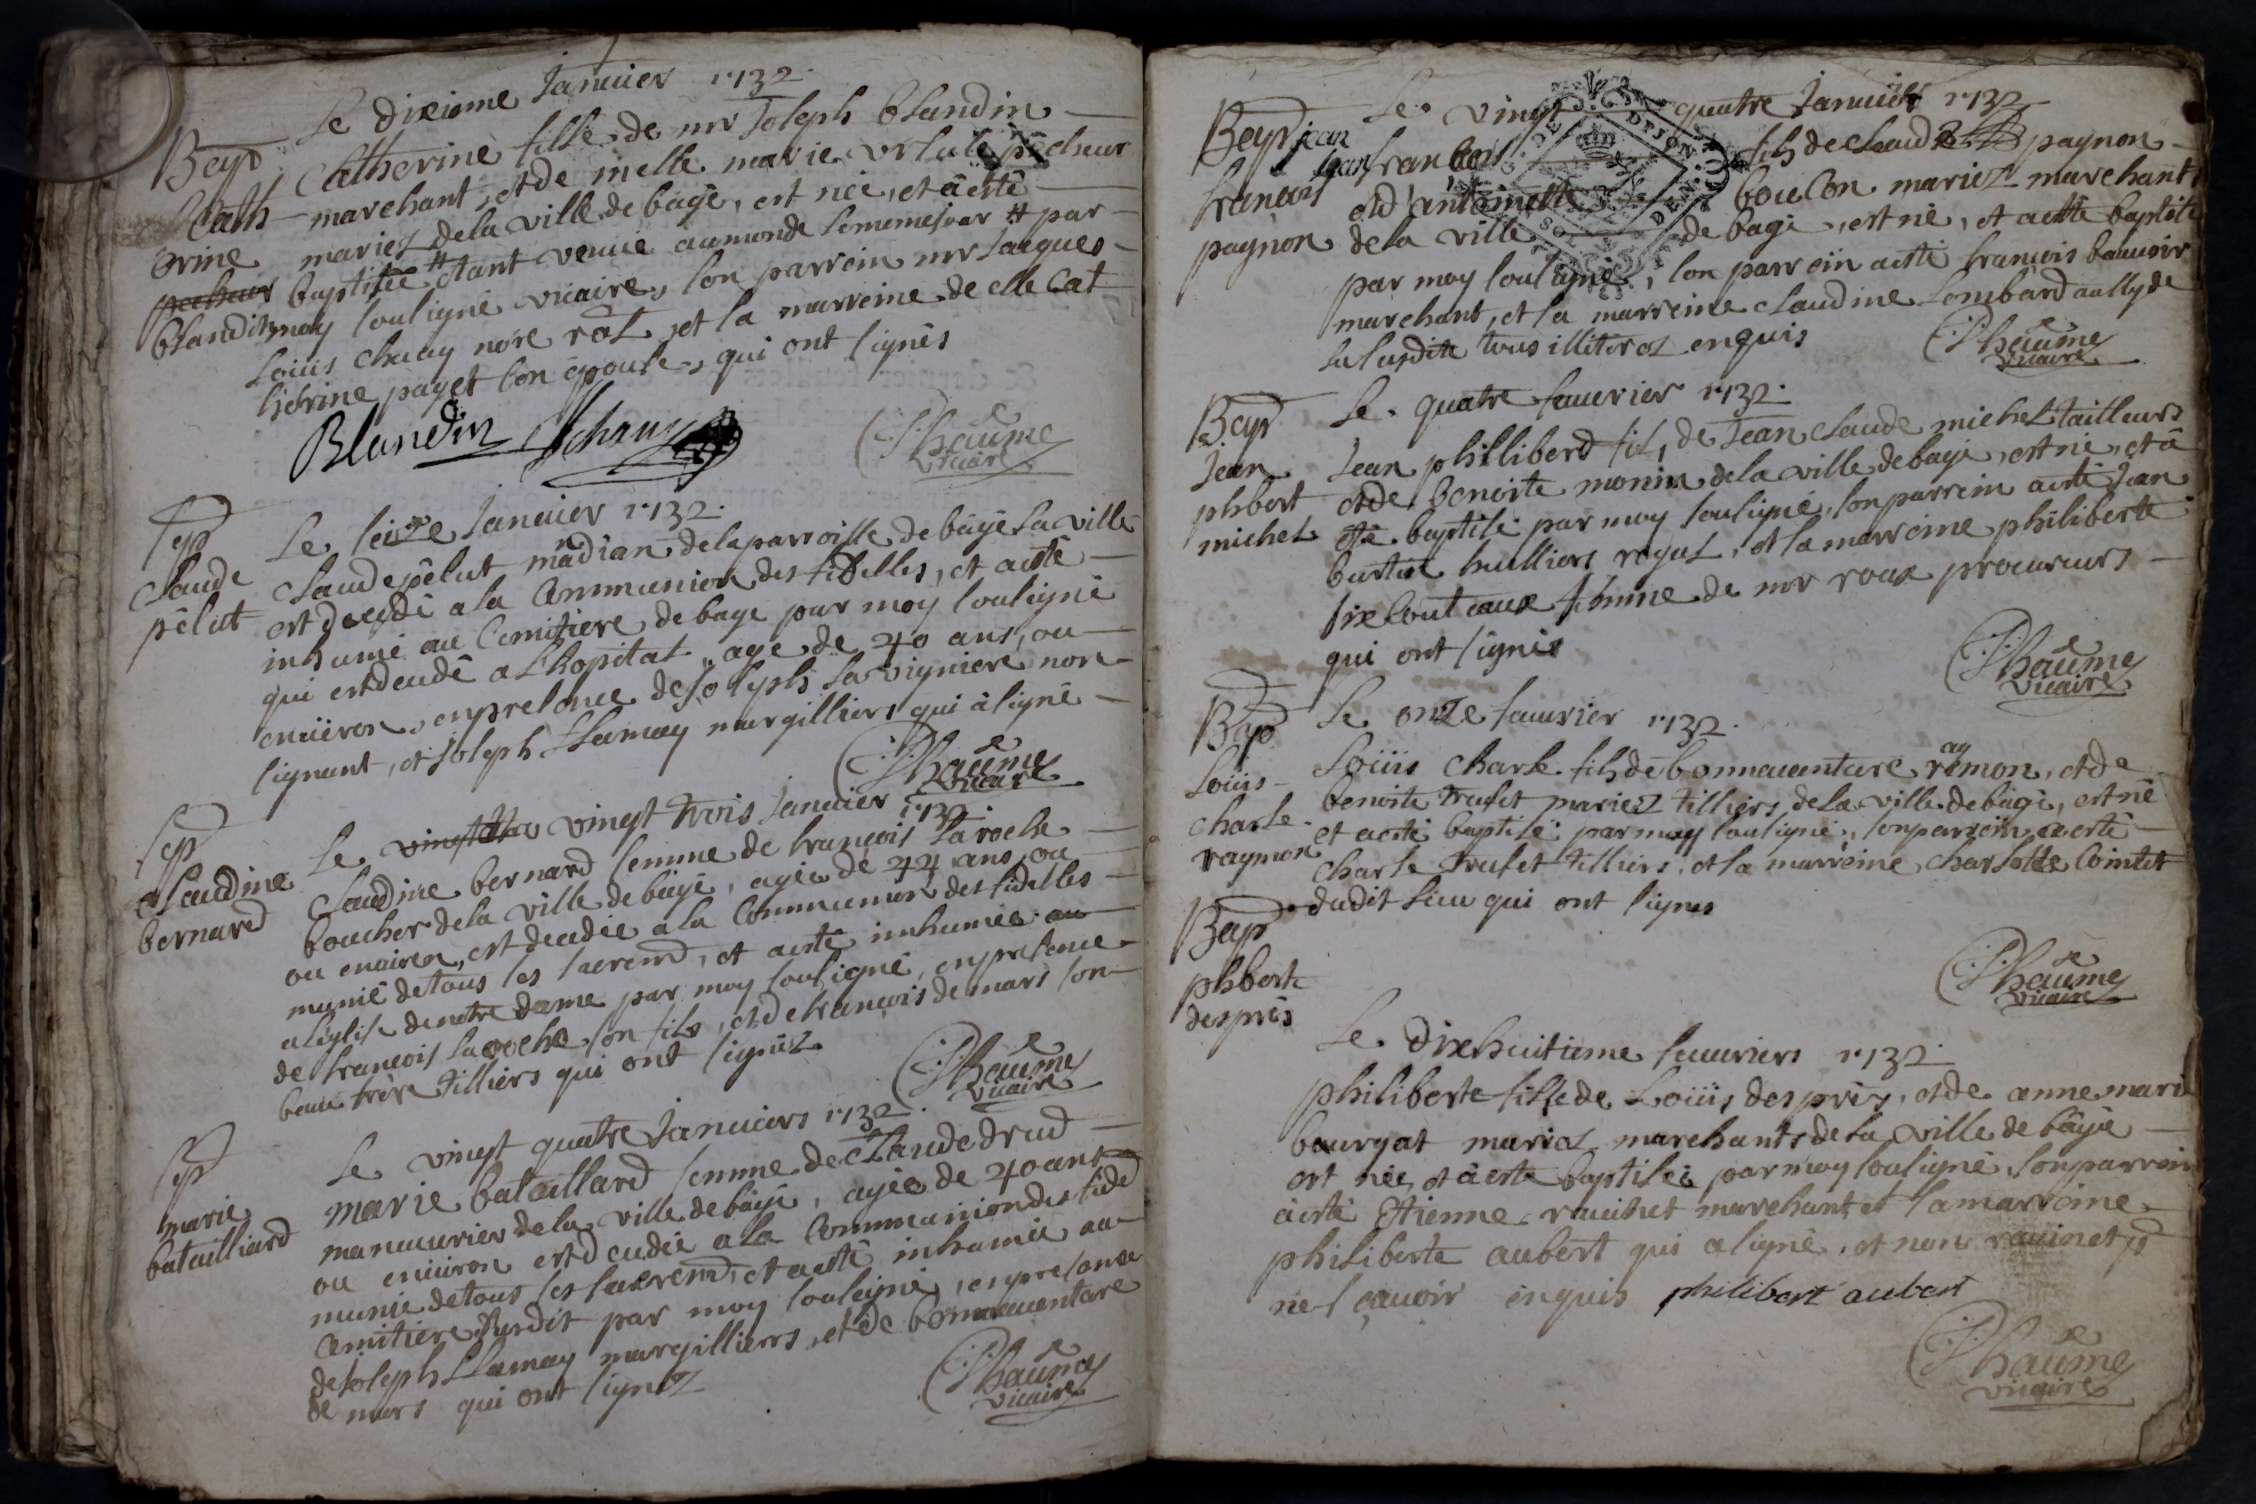 Le dixieme Januier 1732.
Bap Catherine fille de mr Joseph Blandin
Cath marchant, et de melle marie vrsule pêcheur
erine mariez de la ville de bâgé, est née, et a esté
pecheur baptisée # étant venüe au monde le meme jour # par
blandin moy soussigné vicaire, son parrein mr Jacques
Loüis chuay nore roal, et la marreine delle Cat
herine payet son épouse, qui ont signés
Blandin Jchauy Rhaûme
vicaire
Sep Le seize Januier 1732.
Claude Claude pêlut mandian de la parroisse de bâgé la ville
pêlut est decedé a la Communion des fidelles, et a esté
inhumé au Cemitiere de bage par moy souligné
qui est decedé a L'hopital, age de 40 ans, ou
enuiron, en presence de Joseph La vigniere non
signant, et Joseph Lamay margilliers qui à signé
Rhaûme
vicaire
Sep Le vingt trois Januier 1732
Claudine Claudine bernard femme de francois Laroche
bernard boucher de la ville de bâgé, agée de 44 ans, ou
ou enuiron, est decedée a la Communion des fidelles
munie de tous les sacremt, et a esté inhumée au
a l'église de notre dame par moy souligné, en presence
de francois Laroche son fils, et de francois demars son
beau frère tilliers qui ont signéz
Rhaûme
vicaire
Sep Le vingt quatre Januiers 1732.
marie marie bataillard femme de Claude drud
batailliard manuurier de la ville de bâgé, agée de 40 ans
ou enuiron est decedée a la Communion des fidel
munie de tous les sacremt, et a esté inhumée au
Cemitiere susdit par moy souligné, en presence
de Joseph Lamay margilliers, et de bonnauenture
de mars qui ont signéz
Rhaûme
vicaire
Le vingt quatre Januier 1732
Bap jean Jean francois fils de Claude pagnon
francois et d'antoinette boucon mariez marchants
pagnon de la ville de bagé, est né, et a esté baptisé
par moy souligné, son parrein a esté francois bauuoir
marchant, et la marreine Claudine Lombard aussy de
la susdite tous illiterez enquis
Rhaûme
vicaire
Bap Le quatre feuerier 1732.
Jean Jean phillibert fils de Jean Claude michel tailleurs
phbert et de benoite monin de la ville de bagé, est né, et à
michel été baptisé par moy souligné, son parrein a esté Jean
bartist hulliers royal, et la marreine philiberte
sixcouteaux femme de mr roux procureurs
qui ont signés
Rhaûme
vicaire
Bap Le onze feuurier 1732.
Loüis Loüis Charle fils de bonnauanture raymon, et de
Charle benoite trufet mariez tilliers de la ville de bâgé, est né
raymon et a esté baptisé par moy souligné, son parrein a esté
Charle trufet tilliers, et la marreine Charlotte Cointet
dudit lieu qui ont signes
Rhaûme
vicaire
Bap
phbert
desprès
Le dixhuitieme feuuriers 1732.
philiberte fille de Loüis desprès, et de anne marie
bourgat mariez marchants de la ville de bâgé
est née, et à esté baptisée par moy souligné, son parrein
a esté Etienne rauinet marchant et la marreine
philiberte aubert qui a signé, et non rauinet pr
ne sçauoir enquis philibert aubert
Rhaûme
vicaire